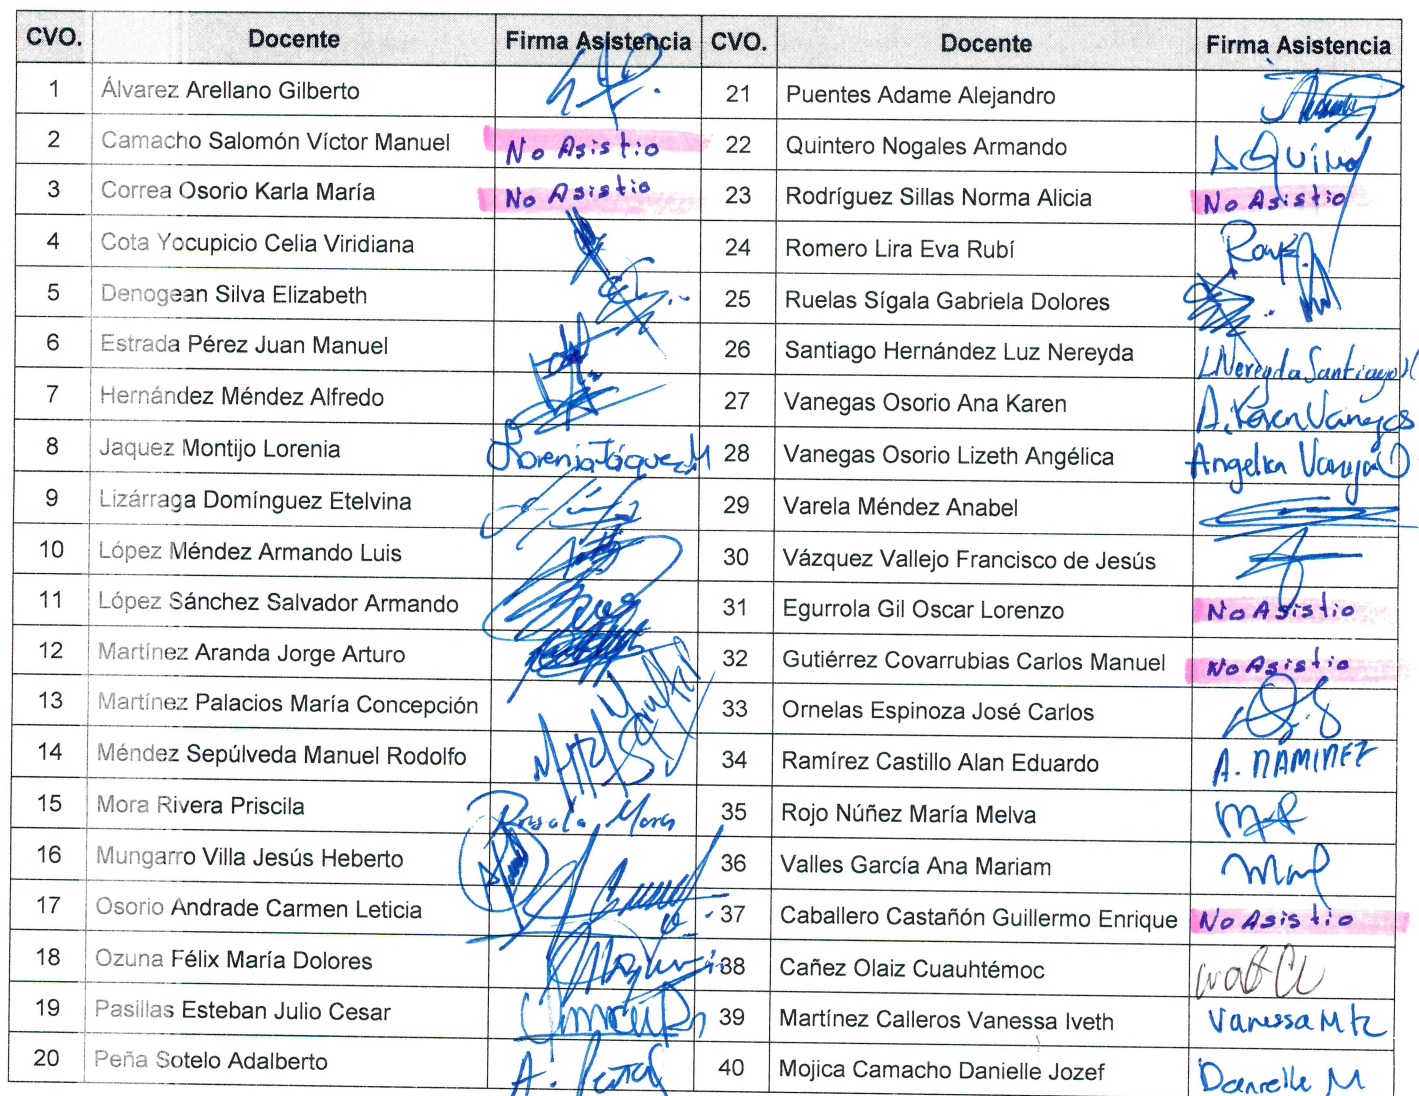 CVO. Docente Firma Asistencia CVO. Docente Firma Asistencia
1 Álvarez Arellano Gilberto 21 Puentes Adame Alejandro
2 Camacho Salomón Víctor Manuel No Asistio 22 Quintero Nogales Armando
3 Correa Osorio Karla María No Asistio 23 Rodríguez Sillas Norma Alicia No Asistio
4 Cota Yocupicio Celia Viridiana 24 Romero Lira Eva Rubí
5 Denogean Silva Elizabeth 25 Ruelas Sígala Gabriela Dolores
6 Estrada Pérez Juan Manuel 26 Santiago Hernández Luz Nereyda L Nereyda Santiago H
7 Hernández Méndez Alfredo 27 Vanegas Osorio Ana Karen A. Karen Vanegas
8 Jaquez Montijo Lorenia Lorenia Jáquez M 28 Vanegas Osorio Lizeth Angélica Angelica Vanegas O
9 Lizárraga Domínguez Etelvina 29 Varela Méndez Anabel
10 López Méndez Armando Luis 30 Vázquez Vallejo Francisco de Jesús
11 López Sánchez Salvador Armando 31 Egurrola Gil Oscar Lorenzo No Asistio
12 Martínez Aranda Jorge Arturo 32 Gutiérrez Covarrubias Carlos Manuel No Asistio
13 Martínez Palacios María Concepción 33 Ornelas Espinoza José Carlos
14 Méndez Sepúlveda Manuel Rodolfo 34 Ramírez Castillo Alan Eduardo A. RAMIREZ
15 Mora Rivera Priscila Priscila Mora 35 Rojo Núñez María Melva
16 Mungarro Villa Jesús Heberto 36 Valles García Ana Mariam
17 Osorio Andrade Carmen Leticia 37 Caballero Castañón Guillermo Enrique No Asistio
18 Ozuna Félix María Dolores 38 Cañez Olaiz Cuauhtémoc
19 Pasillas Esteban Julio Cesar 39 Martínez Calleros Vanessa Iveth Vanessa Mtz
20 Peña Sotelo Adalberto 40 Mojica Camacho Danielle Jozef Danielle M